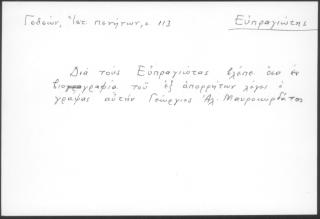 Γεδεών, Ἱστ. πενήτων, σ 113
Εὐπραγιώτης
Διὰ τοὺς Εὐπραγιώτας βλέπε ὅσα ἐν
βιογραφίᾳ τοῦ ἐξ ἀπορρήτων λέγει ὁ
γράψας αὐτὴν Γεώργιος Ἀλ. Μαυροκορδᾶτος